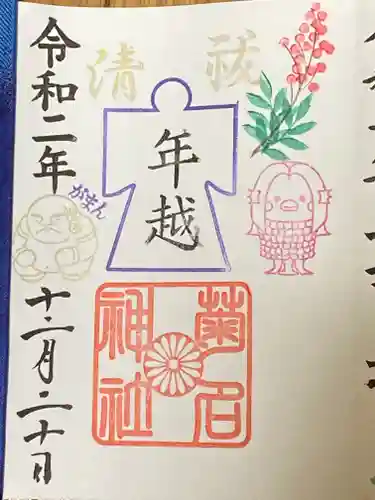 清祓
年越
菊名
神社
がまん
令和二年
十二月二十日